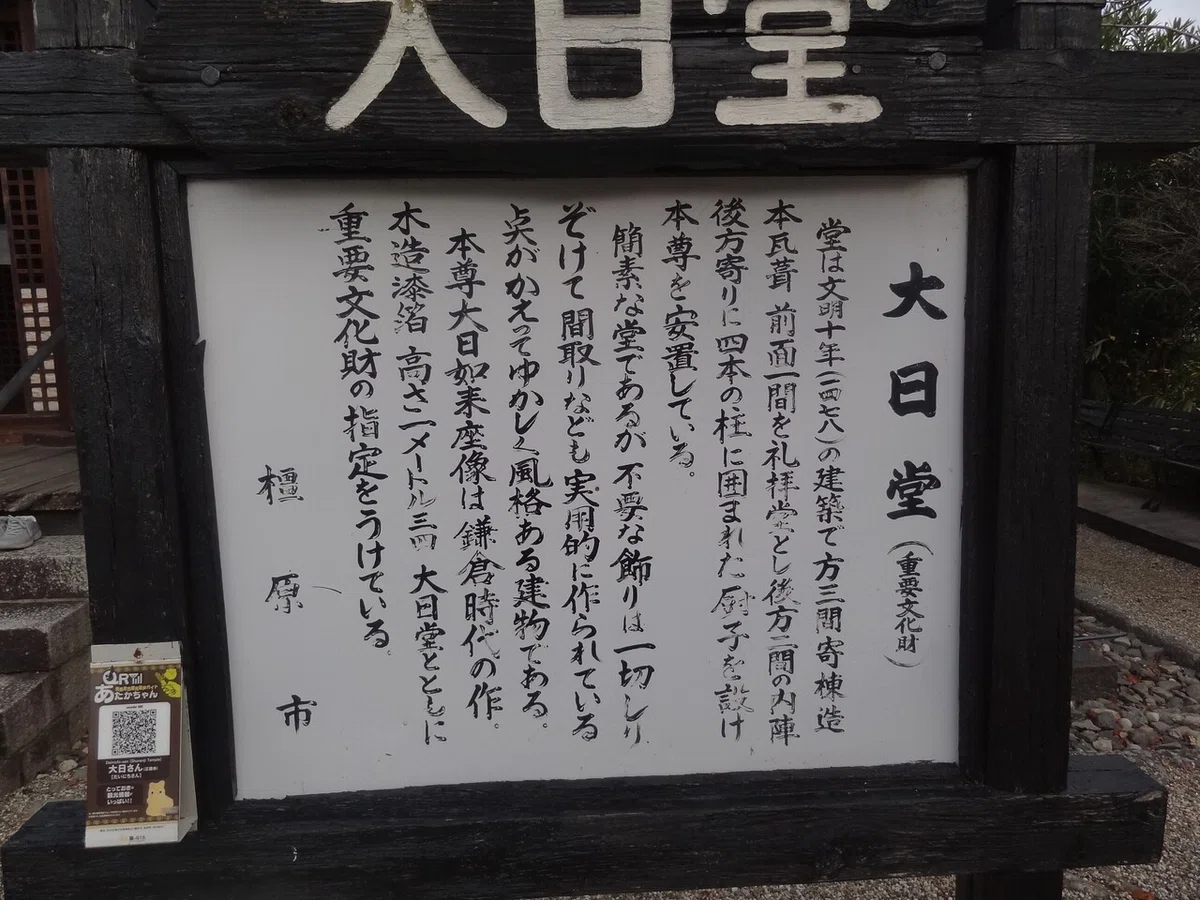 大日堂
大日堂（重要文化財）
堂は文明十年（一四七八）の建築で 方三間寄棟造
本瓦葺 前面一間を礼拝堂とし後方二間の内陣
後方寄りに四本の柱に囲まれた厨子を設け
本尊を安置している。
簡素な堂であるが 不要な飾りは一切しり
ぞけて 間取りなども 実用的に作られている
点がかえってゆかしく風格ある建物である。
本尊大日如来座像は鎌倉時代の作。
木造漆箔 高さ二メートル三四 大日堂とともに
重要文化財の指定をうけている。
橿原市
あたかちゃん
大日さん
[だいにちさん]
とっておきの
観光情報が
いっぱい!!